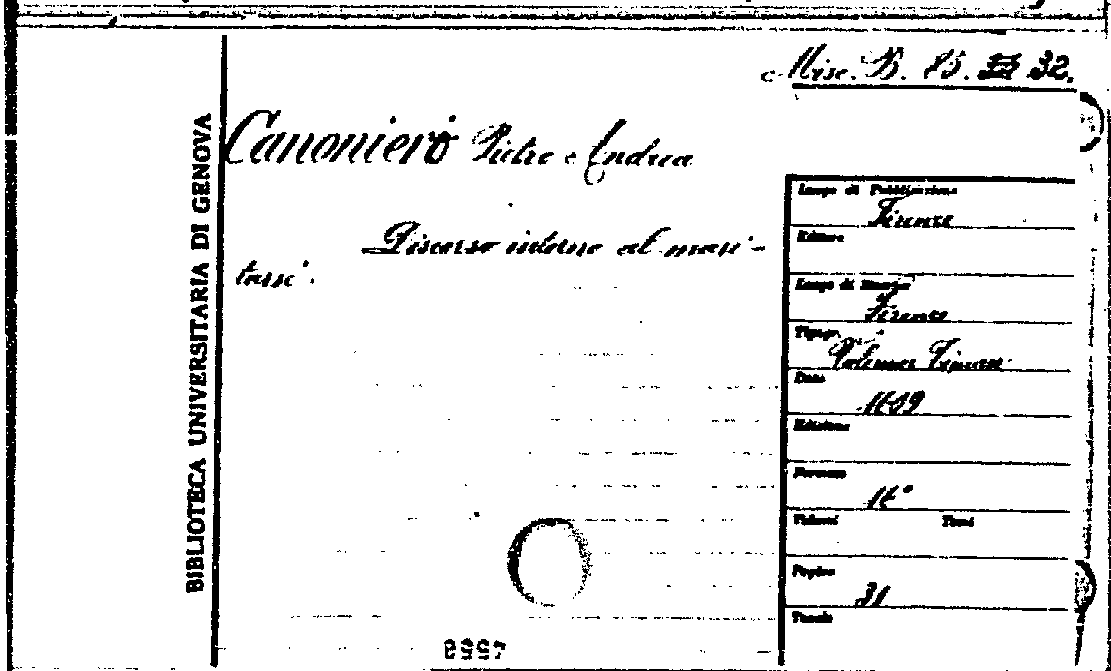 Misc. B. 85. 32.
BIBLIOTECA UNIVERSITARIA DI GENOVA
Canoniero Pietro Andrea
Discorso intorno al mari-
tarsi.
Luogo di Pubblicazione
Firenze
Editore
Luogo di Stampa
Firenze
Tipogr.
Data
Edizione
Formato
Volumi Tomi
Pagine
31
Tavole